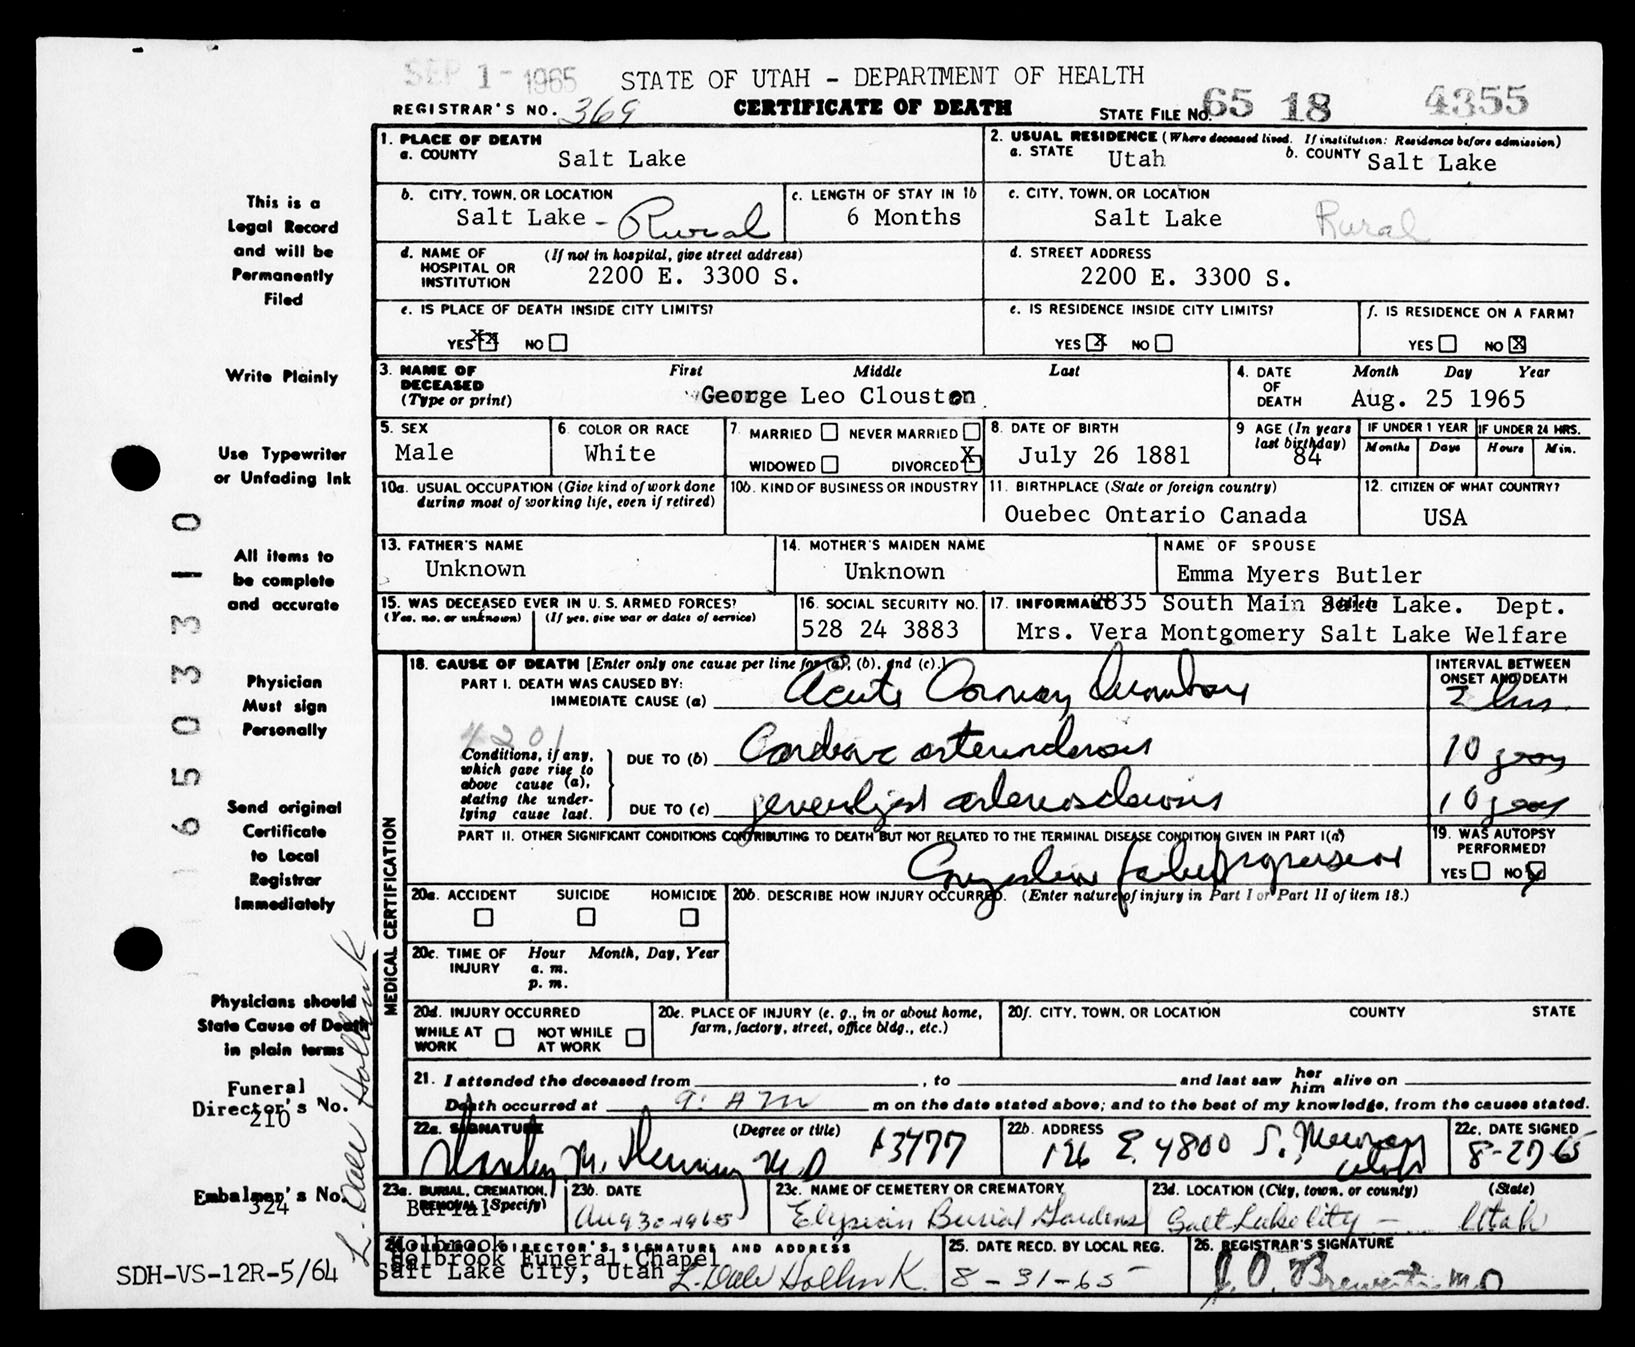 SEP 1 - 1965
STATE OF UTAH - DEPARTMENT OF HEALTH
REGISTRAR'S NO. 369 CERTIFICATE OF DEATH STATE FILE NO. 65 18 4355
1. PLACE OF DEATH
a. COUNTY Salt Lake
2. USUAL RESIDENCE (Where deceased lived. If institution: Residence before admission)
a. STATE Utah b. COUNTY Salt Lake
b. CITY, TOWN, OR LOCATION
Salt Lake - Rural
c. LENGTH OF STAY IN 1b
6 Months
c. CITY, TOWN, OR LOCATION
Salt Lake Rural
d. NAME OF HOSPITAL OR INSTITUTION (If not in hospital, give street address)
2200 E. 3300 S.
d. STREET ADDRESS
2200 E. 3300 S.
e. IS PLACE OF DEATH INSIDE CITY LIMITS?
YES XX NO
e. IS RESIDENCE INSIDE CITY LIMITS?
YES X NO
f. IS RESIDENCE ON A FARM?
YES NO X
3. NAME OF DECEASED (Type or print)
First Middle Last
George Leo Clouston
4. DATE OF DEATH
Month Day Year
Aug. 25 1965
5. SEX
Male
6. COLOR OR RACE
White
7. MARRIED NEVER MARRIED
WIDOWED DIVORCED X
8. DATE OF BIRTH
July 26 1881
9 AGE (In years last birthday)
84
IF UNDER 1 YEAR
Months Days
IF UNDER 24 HRS.
Hours Min.
10a. USUAL OCCUPATION (Give kind of work done during most of working life, even if retired)
10b. KIND OF BUSINESS OR INDUSTRY
11. BIRTHPLACE (State or foreign country)
Ouebec Ontario Canada
12. CITIZEN OF WHAT COUNTRY?
USA
13. FATHER'S NAME
Unknown
14. MOTHER'S MAIDEN NAME
Unknown
NAME OF SPOUSE
Emma Myers Butler
15. WAS DECEASED EVER IN U. S. ARMED FORCES?
(Yes, no, or unknown) (If yes, give war or dates of service)
16. SOCIAL SECURITY NO.
528 24 3883
17. INFORMANT 2835 South Main Salt Lake. Dept.
Mrs. Vera Montgomery Salt Lake Welfare
MEDICAL CERTIFICATION
18. CAUSE OF DEATH [Enter only one cause per line for (a), (b), and (c).]
INTERVAL BETWEEN ONSET AND DEATH
PART I. DEATH WAS CAUSED BY:
IMMEDIATE CAUSE (a) Acute Coronary 2 hrs
4201
Conditions, if any, which gave rise to above cause (a), stating the underlying cause last.
DUE TO (b) Cardiac arteriosclerosis 10 years
DUE TO (c) generalized arteriosclerosis 10 years
PART II. OTHER SIGNIFICANT CONDITIONS CONTRIBUTING TO DEATH BUT NOT RELATED TO THE TERMINAL DISEASE CONDITION GIVEN IN PART I(a)
Congestive failure progressive
19. WAS AUTOPSY PERFORMED?
YES NO
20a. ACCIDENT SUICIDE HOMICIDE
20b. DESCRIBE HOW INJURY OCCURRED. (Enter nature of injury in Part I or Part II of item 18.)
20c. TIME OF INJURY
Hour Month, Day, Year
a. m.
p. m.
20d. INJURY OCCURRED
WHILE AT WORK NOT WHILE AT WORK
20e. PLACE OF INJURY (e. g., in or about home, farm, factory, street, office bldg., etc.)
20f. CITY, TOWN, OR LOCATION COUNTY STATE
21. I attended the deceased from , to and last saw her him alive on
Death occurred at 9: AM m on the date stated above; and to the best of my knowledge, from the causes stated.
22a. SIGNATURE (Degree or title) A3477
M. M D
22b. ADDRESS
126 E. 4800 S. Murray Utah
22c. DATE SIGNED
8-27-65
23a. BURIAL, CREMATION, REMOVAL (Specify)
Burial
23b. DATE
Aug 30-1965
23c. NAME OF CEMETERY OR CREMATORY
Elysian Burial Gardens
23d. LOCATION (City, town, or county) (State)
Salt Lake City - Utah
24. FUNERAL DIRECTOR'S SIGNATURE AND ADDRESS
Holbrook
Holbrook Funeral Chapel
Salt Lake City, Utah L. Dale Holbrook
25. DATE RECD. BY LOCAL REG.
8-31-65
26. REGISTRAR'S SIGNATURE
This is a
Legal Record
and will be
Permanently
Filed
Write Plainly
Use Typewriter
or Unfading Ink
All items to
be complete
and accurate
Physician
Must sign
Personally
Send original
Certificate
to Local
Registrar
Immediately
Physicians should
State Cause of Death
in plain terms
Funeral
Director's No.
210
Embalmer's No.
324
L. Dale Holbrook
SDH-VS-12R-5/64
65033310